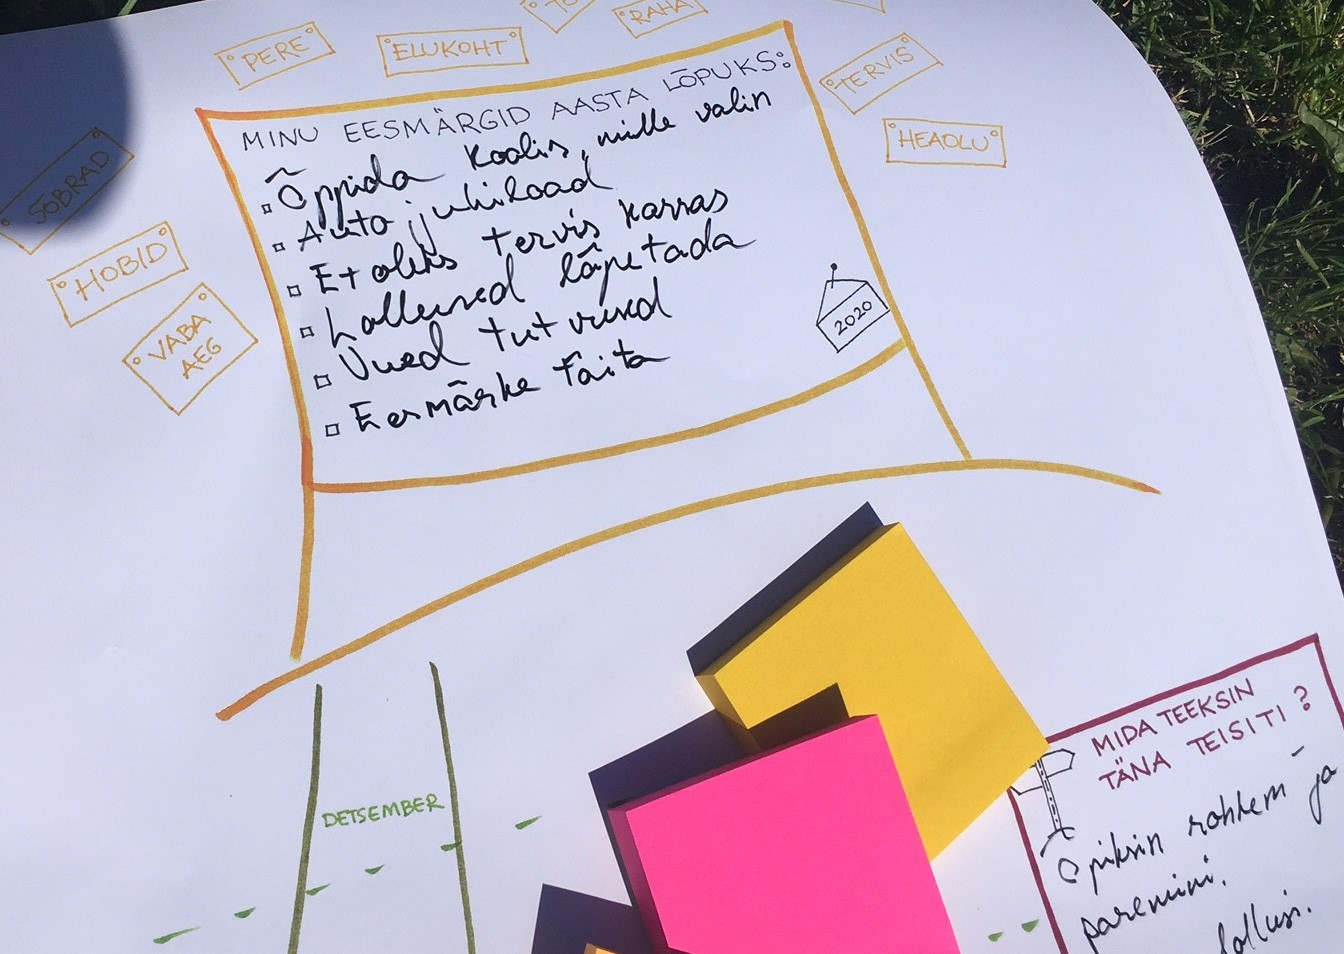 PERE
ELUKOHT
TÖ
RAHA
TERVIS
HEAOLU
SÕBRAD
HOBID
VABA
AEG
MINU EESMÄRGID AASTA LÕPUKS:
Õppida koolis, mille valin
Auto juhiload
Et oleks tervis korras
Lollused lõpetada
Uued tutvused
Eesmärke täita
2020
DETSEMBER
MIDA TEEKSIN
TÄNA TEISITI?
Õpiksin rohkem ja
paremini.
lollusi.